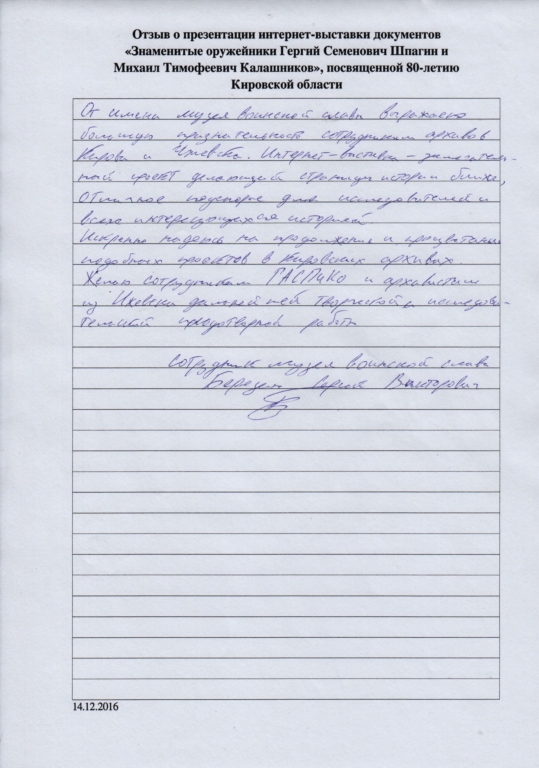 Отзыв о презентации интернет-выставки документов
«Знаменитые оружейники Гергий Семенович Шпагин и
Михаил Тимофеевич Калашников», посвященной 80-летию
Кировской области
От имени музея воинской славы выражаю
большую признательность сотрудникам архивов
Кирова и Ижевска. Интернет-выставка - замечатель-
ный проект делающий страницы истории ближе,
Отличное подспорье для исследователей и
всего интересующихся историей
Искренне надеюсь на продолжение и процветание
подобных проектов в Кировских архивах
Желаю сотрудникам ГАСПИКО и архивистам
из Ижевска дальнейшей творческой, исследова-
тельской плодотворной работы
сотрудник музея воинской славы
Сергей Викторович
14.12.2016